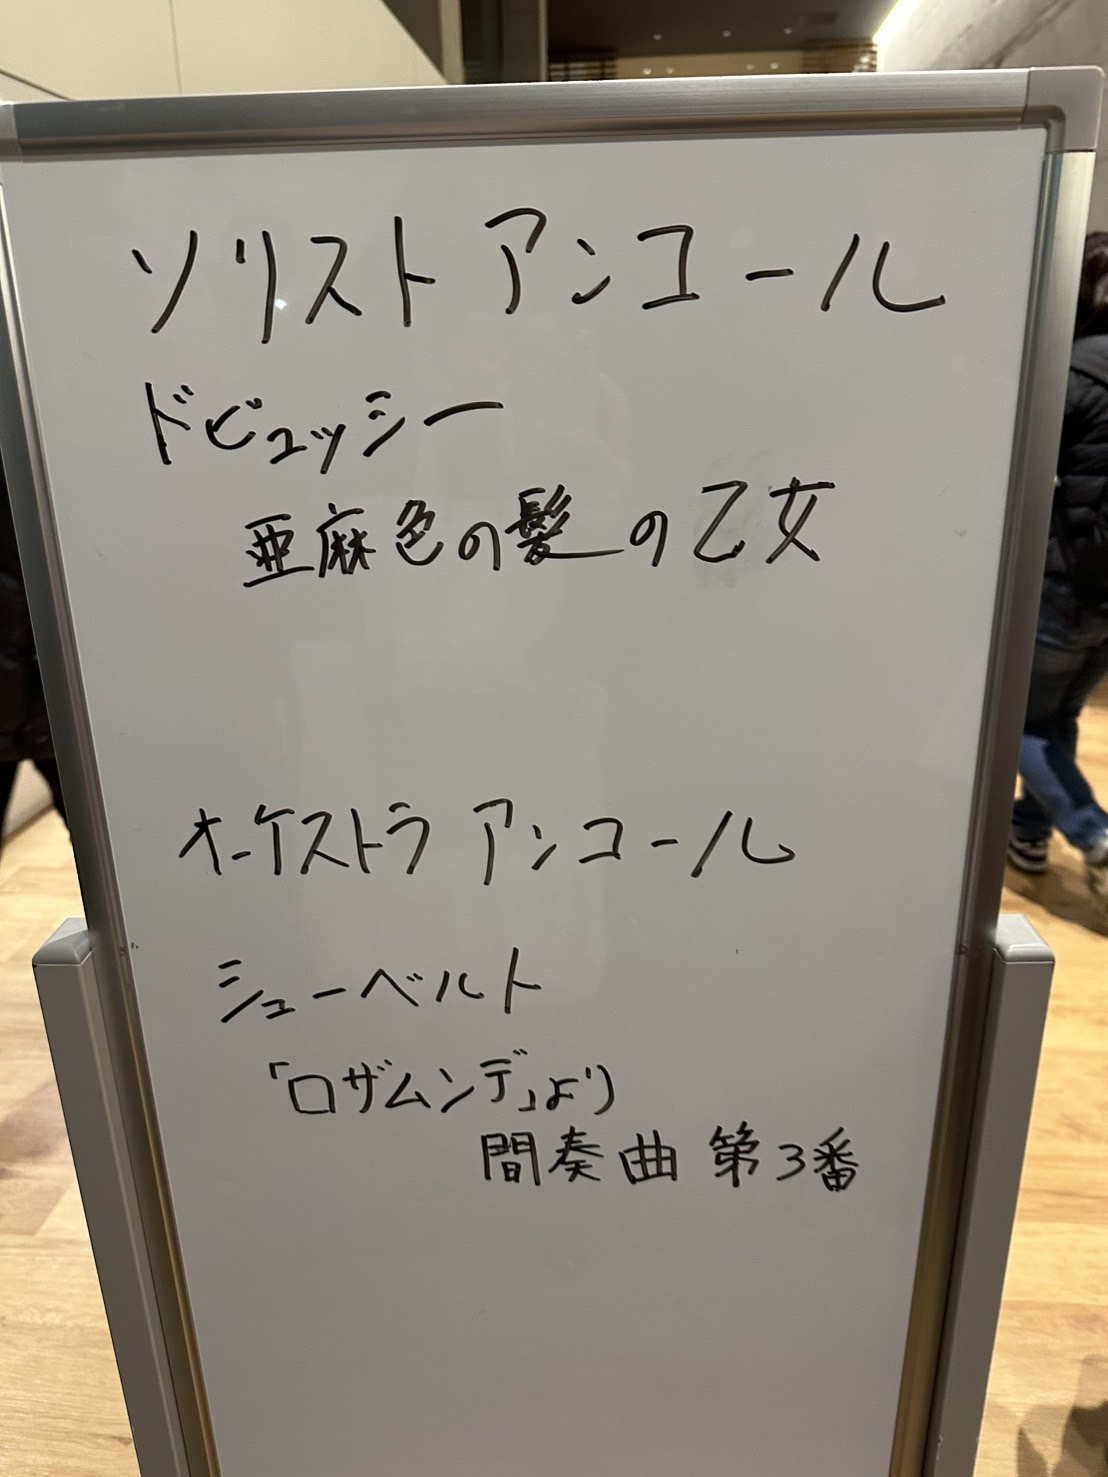 ソリスト アンコール
ドビュッシー
亜麻色の髪の乙女
オーケストラ アンコール
シューベルト
「ロザムンデ」より
間奏曲 第3番